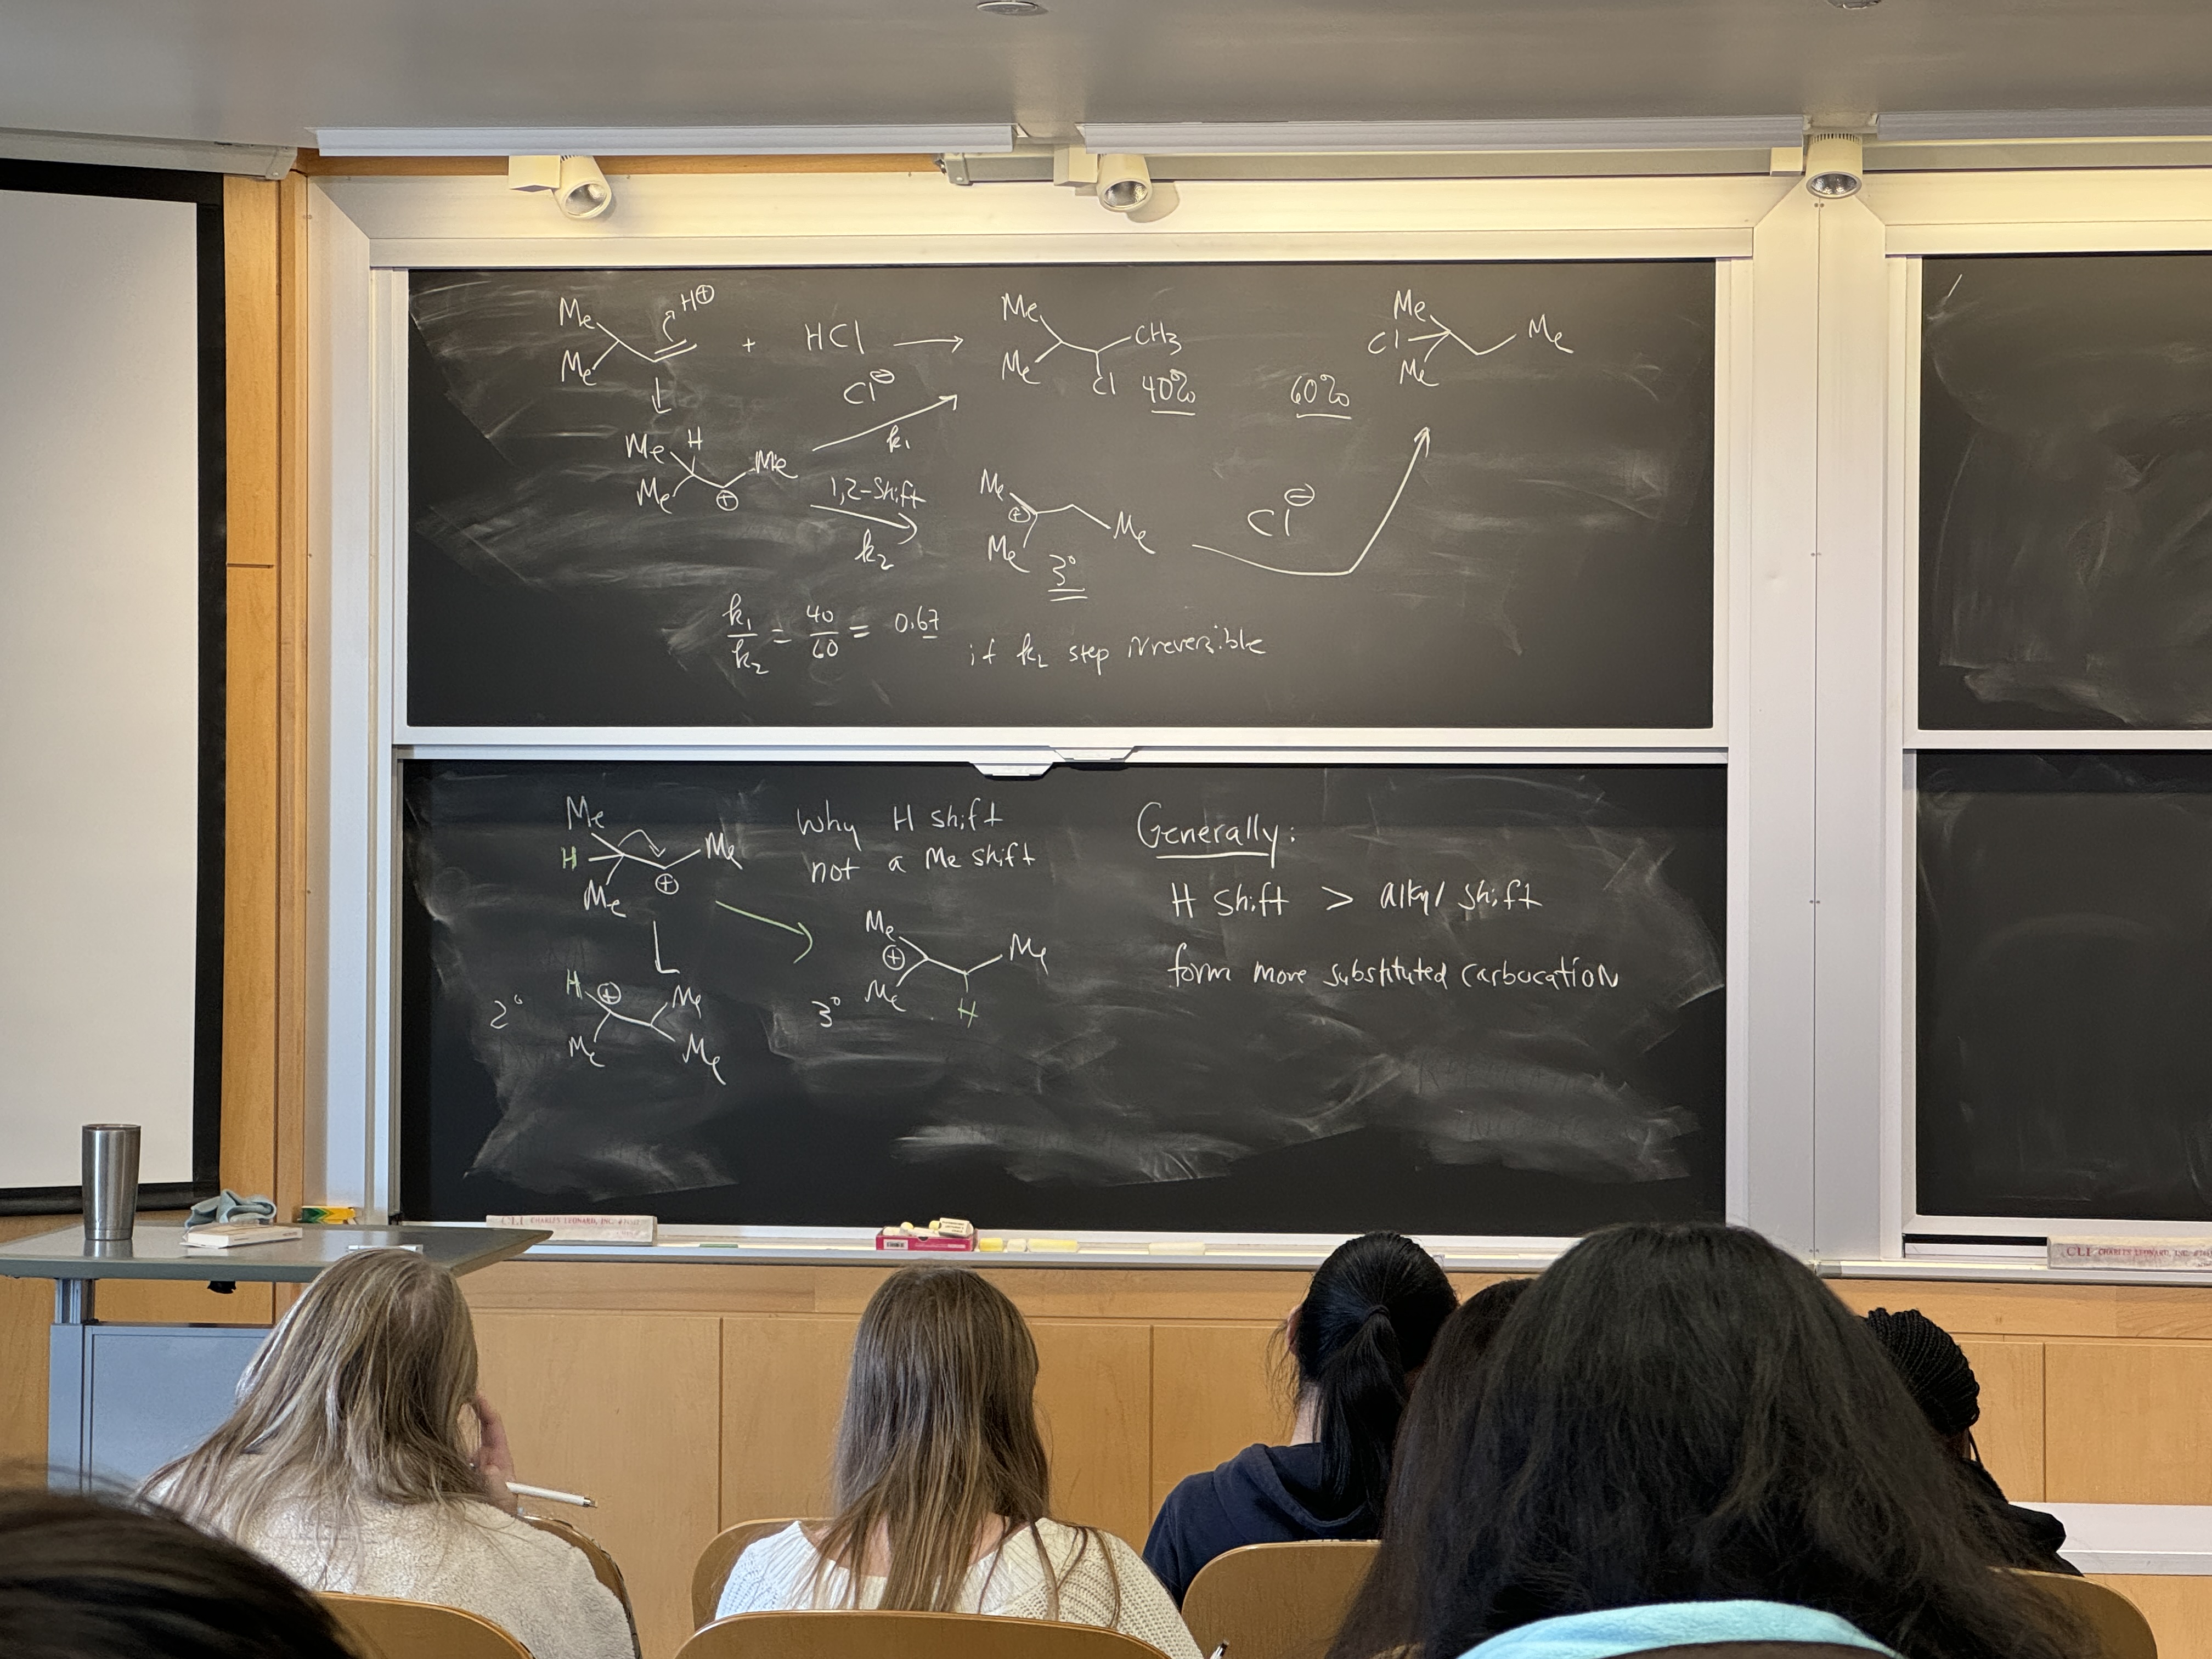 Me H⊕
Me
+ HCl →
Me CH3
Me Cl 40%
60%
Me
Cl Me
Me
Cl⊖
k1
Me H Me
Me ⊕
1,2-Shift
k2
Me
⊕ Me
Me 3°
Cl⊖
k1/k2 = 40/60 = 0.67 if k2 step irreversible
Me
H Me
Me ⊕
Why H shift
not a Me shift
H ⊕ Me
2° Me Me
Me
⊕ Me
Me
3° H
Generally:
H Shift > alkyl shift
form more substituted carbocation
CLI CHARLES LEONARD, INC.
CLI CHARLES LEONARD, INC.